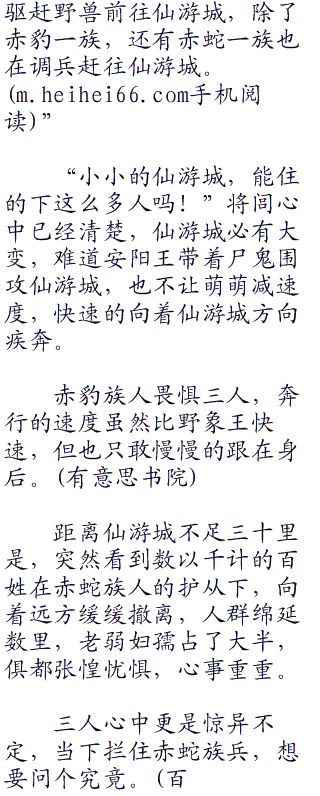 驱赶野兽前往仙游城，除了
赤豹一族，还有赤蛇一族也
在调兵赶往仙游城。
(m.heihei66.com手机阅
读)”
“小小的仙游城，能住
的下这么多人吗！”将闾心
中已经清楚，仙游城必有大
变，难道安阳王带着尸鬼围
攻仙游城，也不让萌萌减速
度，快速的向着仙游城方向
疾奔。
赤豹族人畏惧三人，奔
行的速度虽然比野象王快
速，但也只敢慢慢的跟在身
后。(有意思书院)
距离仙游城不足三十里
是，突然看到数以千计的百
姓在赤蛇族人的护从下，向
着远方缓缓撤离，人群绵延
数里，老弱妇孺占了大半，
俱都张惶忧惧，心事重重。
三人心中更是惊异不
定，当下拦住赤蛇族兵，想
要问个究竟。(百